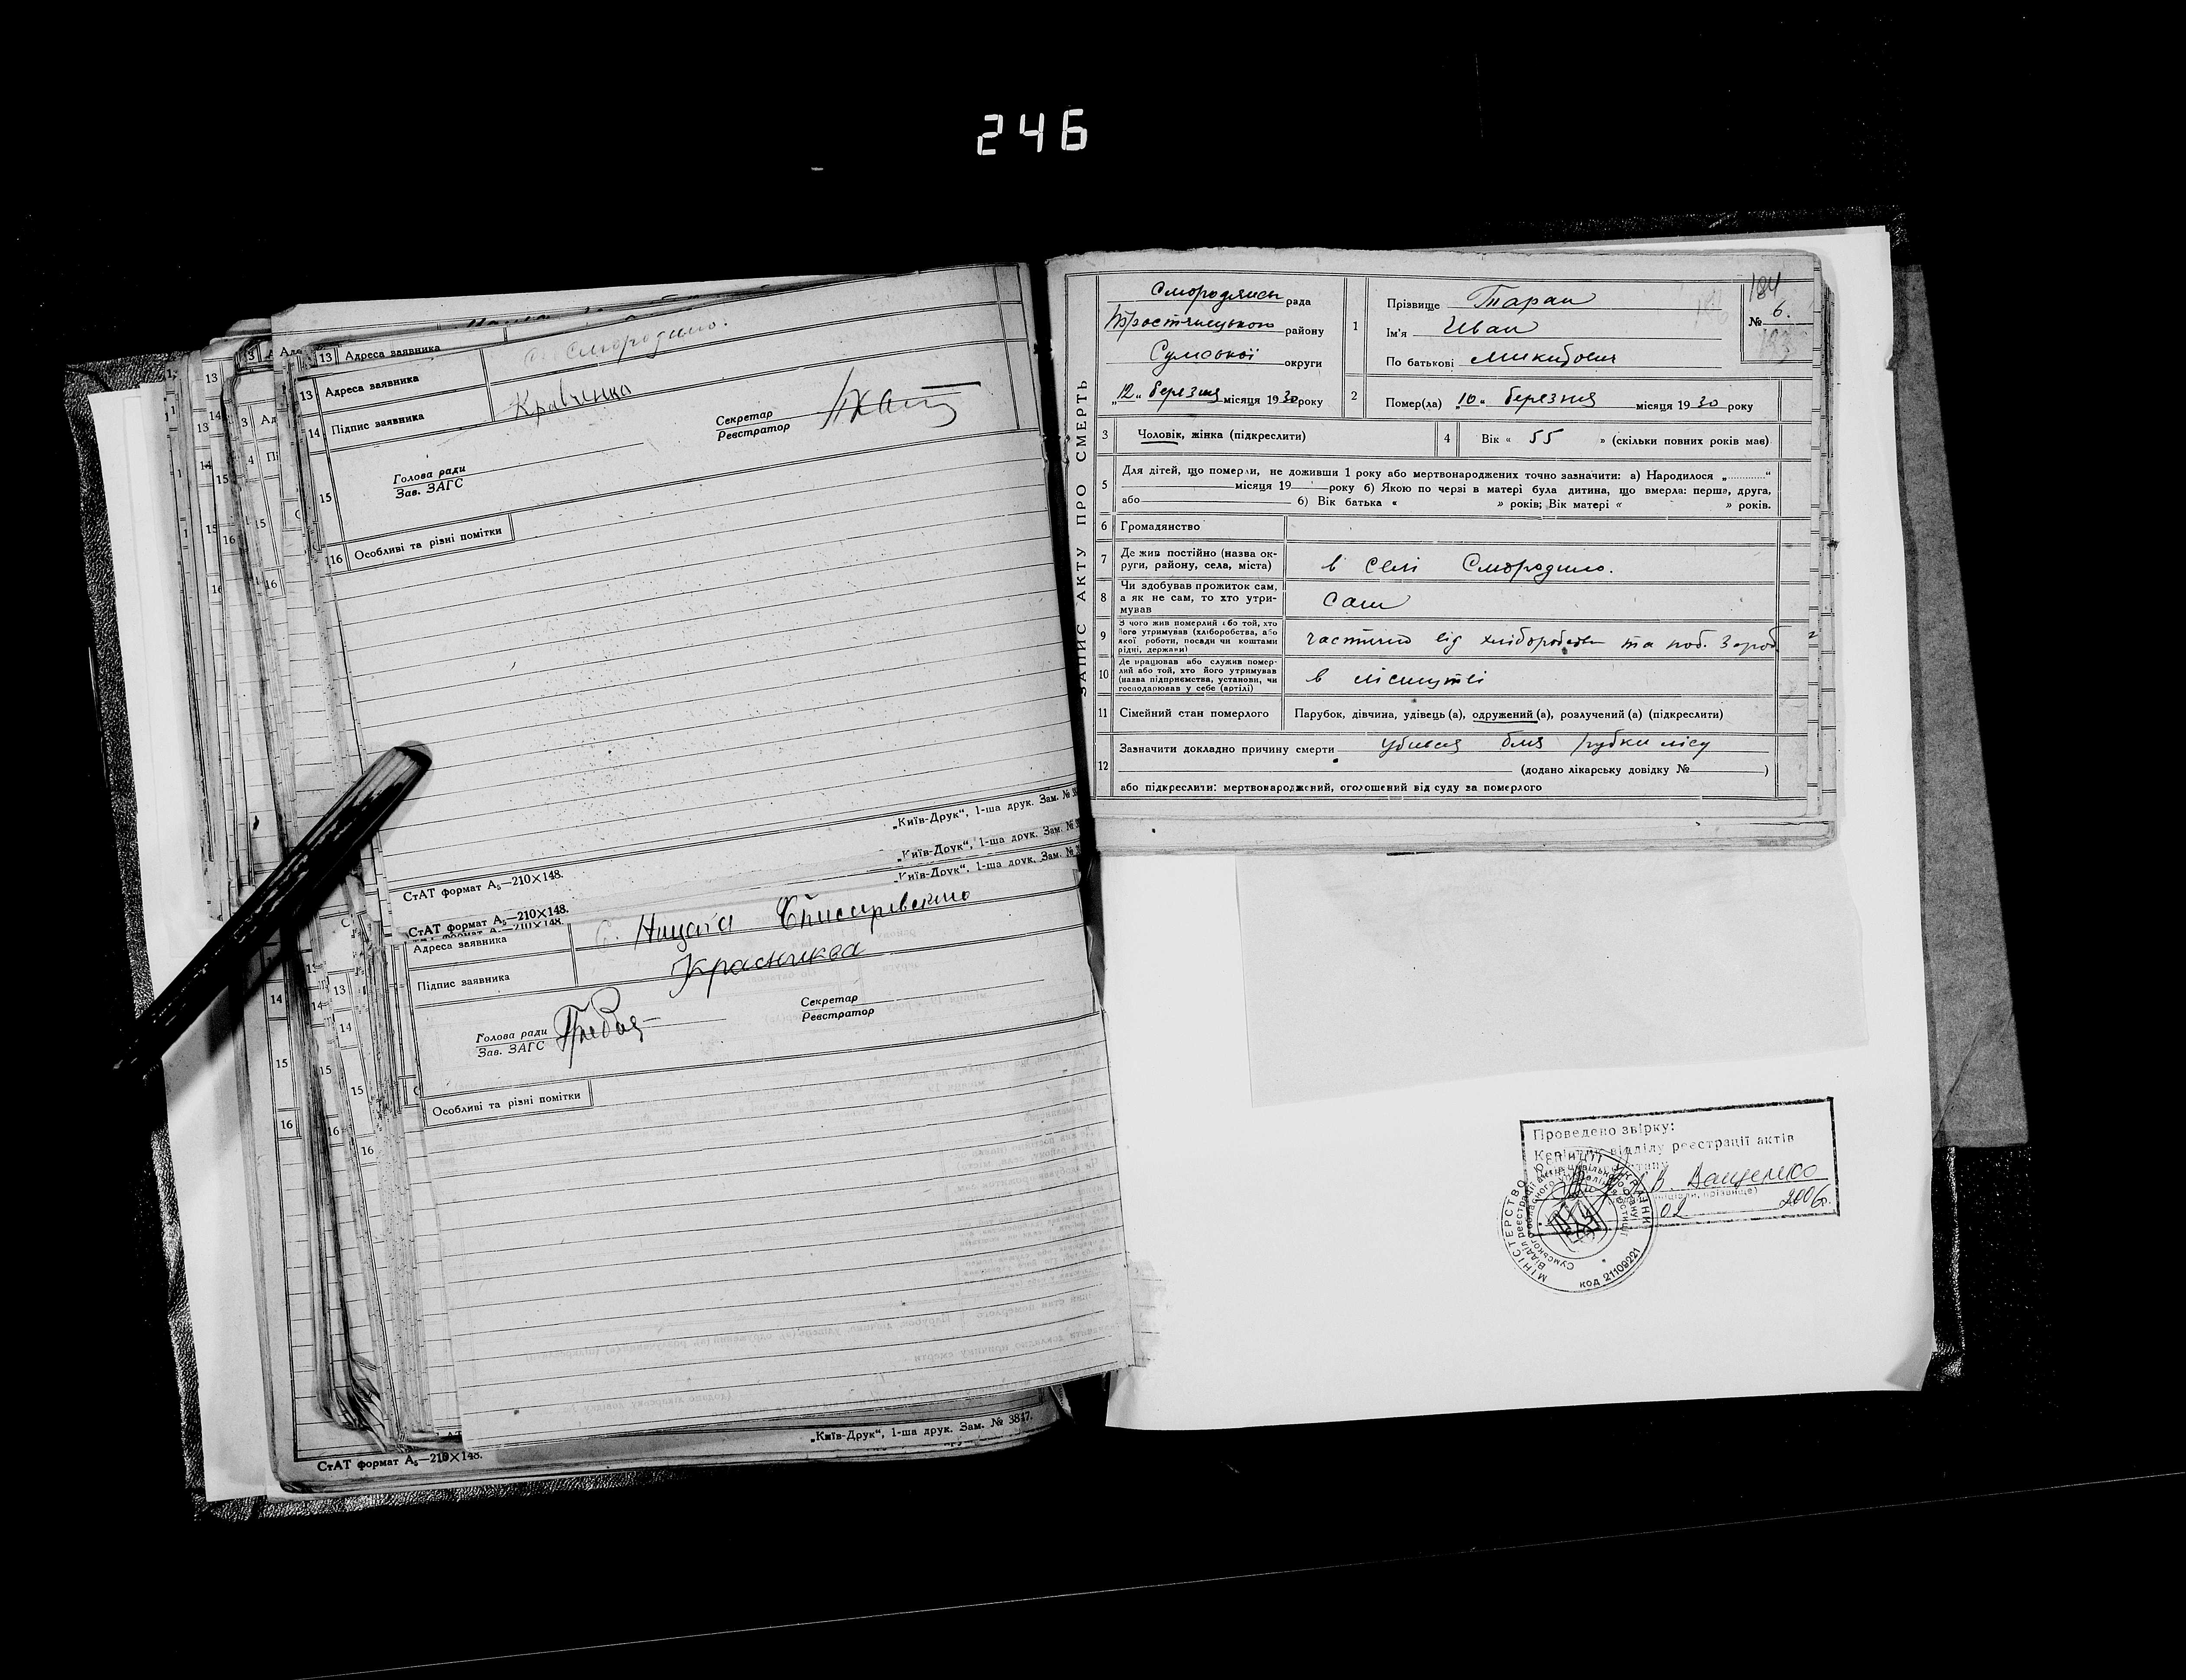 246
13 Адреса заявника
13 Адреса заявника с. Смородино.
14 Підпис заявника Кравченко
Секретар
Реєстратор
15 Голова ради
Зав. ЗАГС
16 Особливі та різні помітки
„Київ-Друк“, 1-ша друк. Зам. №
„Київ-Друк“, 1-ша друк. Зам. №
„Київ-Друк“, 1-ша друк. Зам. №
СтАТ формат А₅—210×148.
СтАТ формат А₅—210×148.
Адреса заявника с. Ницаха
Підпис заявника
Секретар
Реєстратор
Голова ради
Зав. ЗАГС
Особливі та різні помітки
„Київ-Друк“, 1-ша друк. Зам. № 3847.
СтАТ формат А₅—210×148.
ЗАПИС АКТУ ПРО СМЕРТЬ
Смородянськ рада
Тростянецького району
Сумської округи
„12“ березня місяця 1930 року
1 Прізвище Таран
Ім'я Иван
По батькові Микитович
184
№ 6.
183
2 Помер(ла) „10“ березня місяця 1930 року
3 Чоловік, жінка (підкреслити)
4 Вік « 55 » (скільки повних років має)
5 Для дітей, що померли, не доживши 1 року або мертвонароджених точно зазначити: а) Народилося „ “
місяця 19 року б) Якою по черзі в матері була дитина, що вмерла: перша, друга,
або б) Вік батька « » років; Вік матері « » років.
6 Громадянство
7 Де жив постійно (назва ок-
руги, району, села, міста) в селі Смородино.
8 Чи здобував прожиток сам,
а як не сам, то хто утри-
мував сам
9 З чого жив померлий або той, хто
його утримував (хліборобства, або
якої роботи, посади чи коштами
рідні, держави) частино від хліборобства та поб. зароб
10 Де працював або служив помер-
лий або той, хто його утримував
(назва підприємства, установи, чи
господарював у себе (артілі) в
11 Сімейний стан померлого Парубок, дівчина, удівець (а), одружений (а), розлучений (а) (підкреслити)
12 Зазначити докладно причину смерти убився біля рубки лісу
(додано лікарську довідку № )
або підкреслити: мертвонароджений, оголошений від суду за померлого
Проведено звірку:
Керівник відділу реєстрації актів
цивільного стану
В. Ващенко
(ініціали, прізвище)
02 2006р.
МІНІСТЕРСТВО ЮСТИЦІЇ УКРАЇНИ
код 21109221